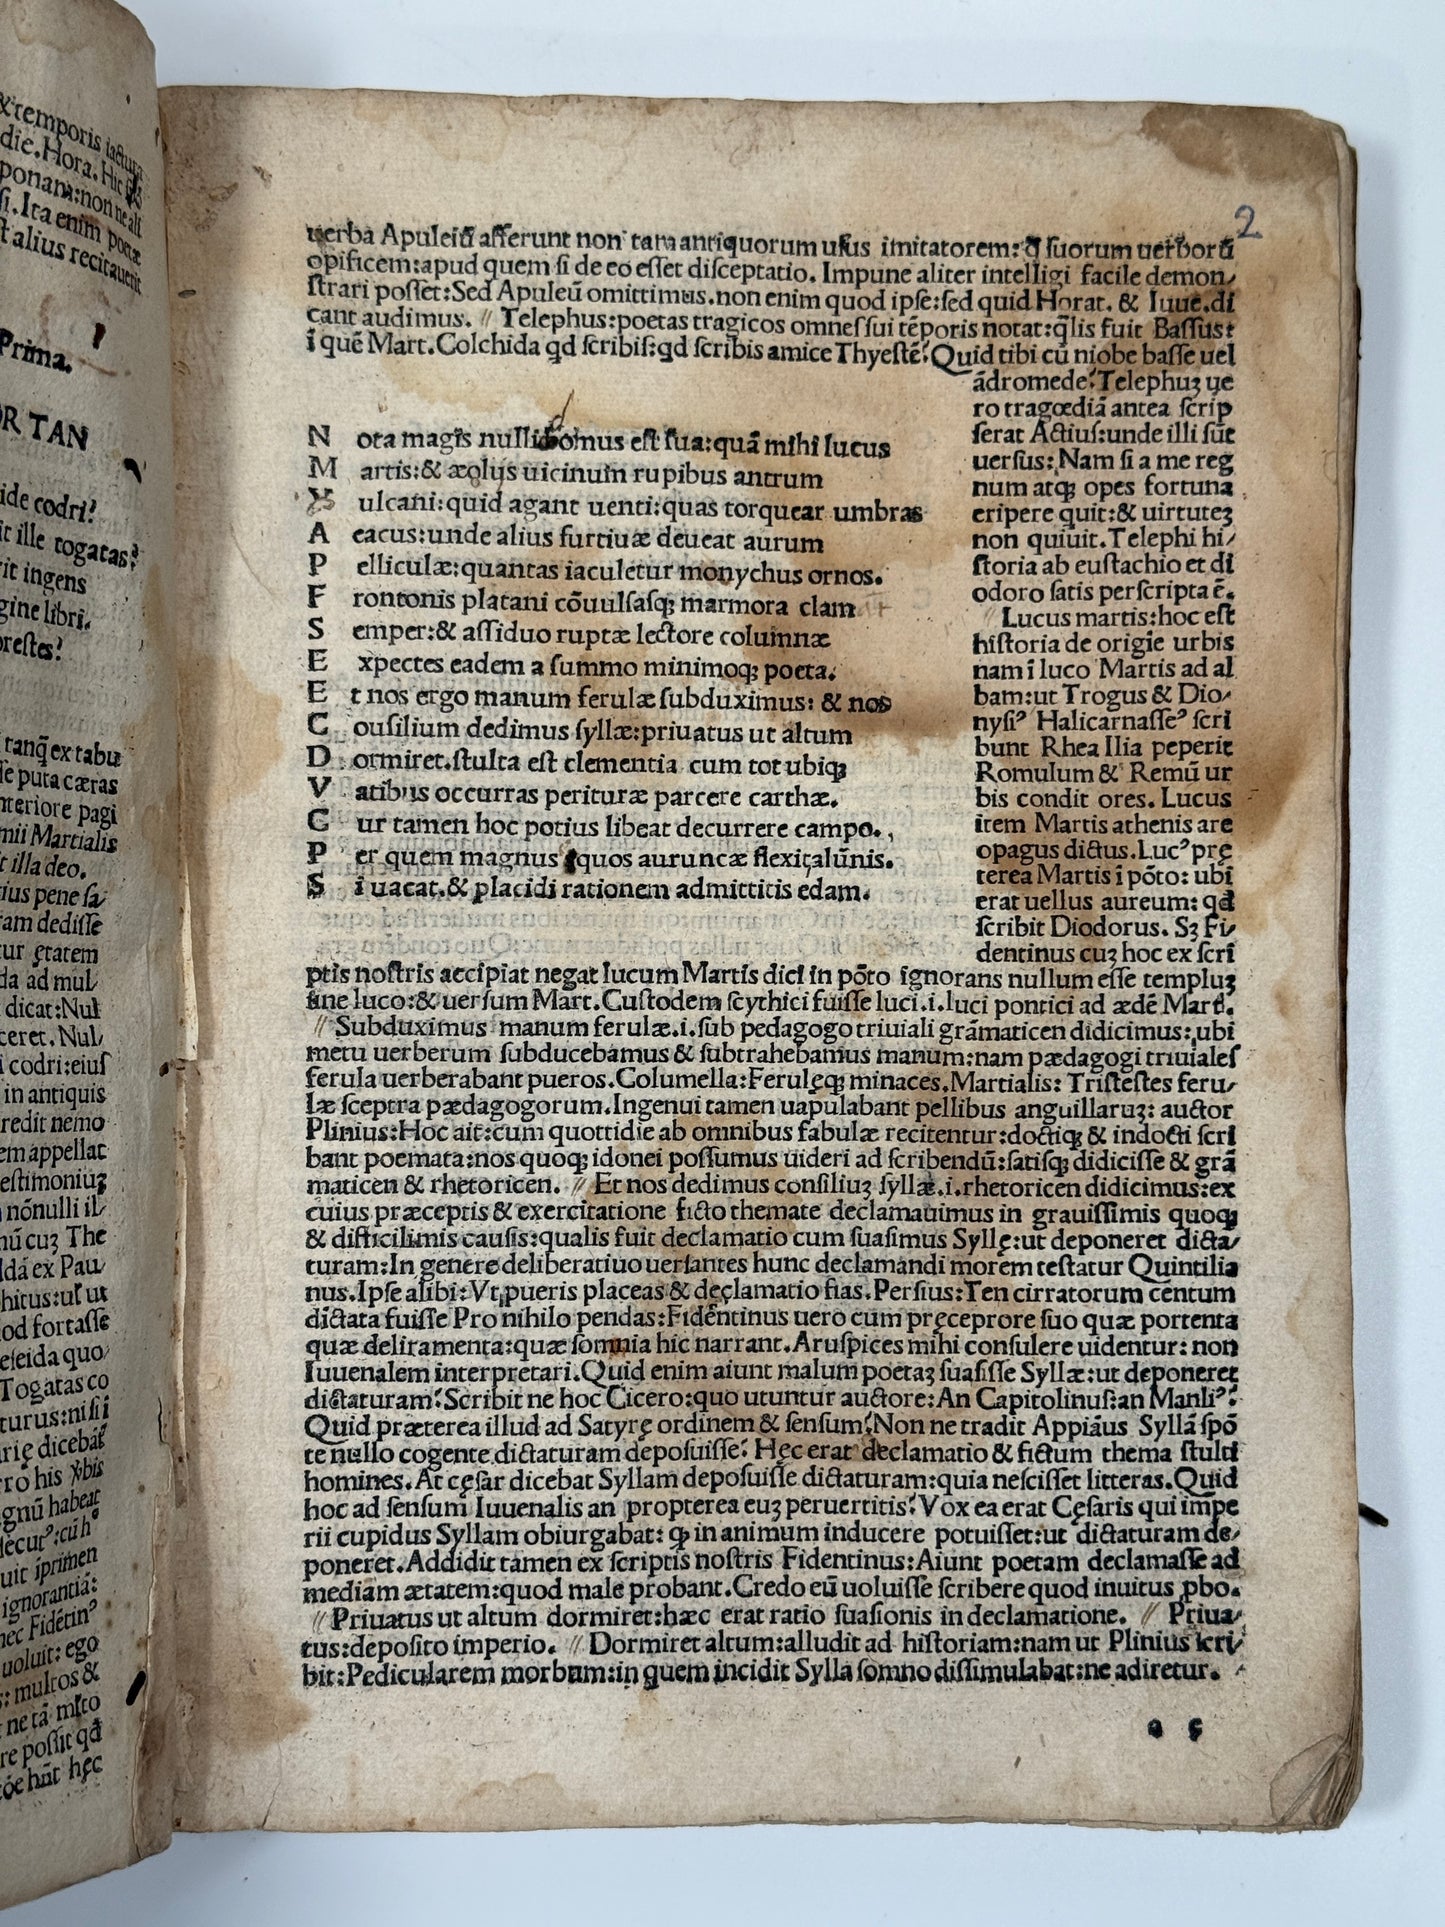 & temporis iactura
die. Hora. Hic
ponam: non ne ali
si. Ita enim poetæ
t alius recitauerit
Prima.
OR TAN
ide codri?
it ille togatas?
rit ingens
gine libri.
orestes?
tanq̃ ex tabu
se puta cæras
nteriore pagi
mii Martialis
t illa deo.
tius pene sa/
iam dedisse
tur ętatem
da ad mul/
dicat: Nul
ceret. Nul/
i codri: eius
in antiquis
redit nemo
em appellat
estimoniuꝫ
nõnulli il/
nũ cuꝫ The
ldã ex Pau/
hitus: ul ut
od fortasse
eseida quo/
Togatas co
turus: nisi i
arię dicebãt
ro his ꝟbis
gnũ habeat
uit iprimen
ignorantiã:
nec Fidẽtinꝰ
uoluit: ego
s: multos &
t ne tã mlto
re possit qđ
2
uerba Apuleiũ afferunt non tam antiquorum usus imitatorem: q̃ suorum uerborũ
opificem: apud quem si de eo esset disceptatio. Impune aliter intelligi facile demon/
strari posset: Sed Apuleũ omittimus. non enim quod ipse: sed quid Horat. & Iuue. di
cant audimus. // Telephus: poetas tragicos omnes sui tẽporis notat: q̃lis fuit Bassus:
ĩ quẽ Mart. Colchida qđ scribis: qđ scribis amice Thyestẽ? Quid tibi cũ niobe basse uel
ãdromede? Telephuꝫ ue
ro tragœdiã antea scrip
serat Actius: unde illi sũt
uersus: Nam si a me reg
num atqꝫ opes fortuna
eripere quit: & uirtuteꝫ
non quiuit. Telephi hi/
storia ab eustachio et di
odoro satis perscripta ẽ.
// Lucus martis: hoc est
historia de origĩe urbis
nam ĩ luco Martis ad al
bam: ut Trogus & Dio/
nysiꝰ Halicarnasseꝰ scri
bunt Rhea Ilia peperit
Romulum & Remũ ur
bis condit ores. Lucus
item Martis athenis are
opagus dictus. Lucꝰ prę
terea Martis ĩ põto: ubi
erat uellus aureum: qđ
scribit Diodorus. Sꝫ Fi/
dentinus cuꝫ hoc ex scri
N ota magis nulli domus est sua: quã mihi lucus
M artis: & æolijs uicinum rupibus antrum
V ulcani: quid agant uenti: quas torquear umbras
A eacus: unde alius furtiuæ deueat aurum
P elliculæ: quantas iaculetur monychus ornos.
F rontonis platani cõuulsasqꝫ marmora clam
S emper: & assiduo ruptæ lectore columnæ
E xpectes eadem a summo minimoqꝫ poeta.
E t nos ergo manum ferulæ subduximus: & nos
C ousilium dedimus syllæ: priuatus ut altum
D ormiret. stulta est clementia cum tot ubiqꝫ
V atibus occurras perituræ parcere carthæ.
C ur tamen hoc potius libeat decurrere campo.
P er quem magnus equos auruncæ flexit alũnis.
S i uacat. & placidi rationem admittitis edam.
ptis nostris accipiat negat lucum Martis dici in põto ignorans nullum esse templuꝫ
sine luco: & uersum Mart. Custodem scythici fuisse luci. i. luci pontici ad ædẽ Mart.
// Subduximus manum ferulæ. i. sub pedagogo triuiali grãmaticen didicimus: ubi
metu uerberum subducebamus & subtrahebamus manum: nam pædagogi triuiales
ferula uerberabant pueros. Columella: Feruleqꝫ minaces. Martialis: Tristestes feru/
læ sceptra pædagogorum. Ingenui tamen uapulabant pellibus anguillaruꝫ: auctor
Plinius: Hoc ait: cum quottidie ab omnibus fabulæ recitentur: doctiqꝫ & indocti scri
bant poemata: nos quoqꝫ idonei possumus uideri ad scribendũ: satisqꝫ didicisse & grã
maticen & rhetoricen. // Et nos dedimus consiliuꝫ syllæ. i. rhetoricen didicimus: ex
cuius præceptis & exercitatione ficto themate declamauimus in grauissimis quoqꝫ
& difficilimis causis: qualis fuit declamatio cum suasimus Syllę: ut deponeret dicta/
turam: In genere deliberatiuo uersantes hunc declamandi morem testatur Quintilia
nus. Ipse alibi: Vt pueris placeas & declamatio fias. Persius: Ten cirratorum centum
dictata fuisse Pro nihilo pendas: Fidẽtinus uero cum pręceprore suo quæ portenta
quæ deliramenta: quæ somnia hic narrant. Aruspices mihi consulere uidentur: non
Iuuenalem interpretari. Quid enim aiunt malum poetaꝫ suasisse Syllæ: ut deponeret
dictaturam? Scribit ne hoc Cicero: quo utuntur auctore: An Capitolinus: an Manliꝰ?
Quid præterea illud ad Satyrę ordinem & sensum? Non ne tradit Appiãus Syllã spõ
te nullo cogente dictaturam deposuisse? Hęc erat declamatio & fictum thema stulti
homines. At cęsar dicebat Syllam deposuisse dictaturam: quia nescisset litteras. Quid
hoc ad sensum Iuuenalis an propterea euꝫ peruertitis? Vox ea erat Cęsaris qui impe
rii cupidus Syllam obiurgabat: ꝙ in animum inducere potuisset: ut dictaturam de/
poneret. Addidit tamen ex scriptis nostris Fidentinus: Aiunt poetam declamasse ad
mediam ætatem: quod male probant. Credo eũ uoluisse scribere quod inuitus ꝓbo.
// Priuatus ut altum dormiret: hæc erat ratio suasionis in declamatione. // Priua/
tus: deposito imperio. // Dormiret altum: alludit ad historiam: nam ut Plinius scri/
bit: Pedicularem morbum: in quem incidit Sylla somno dissimulabat: ne adiretur.